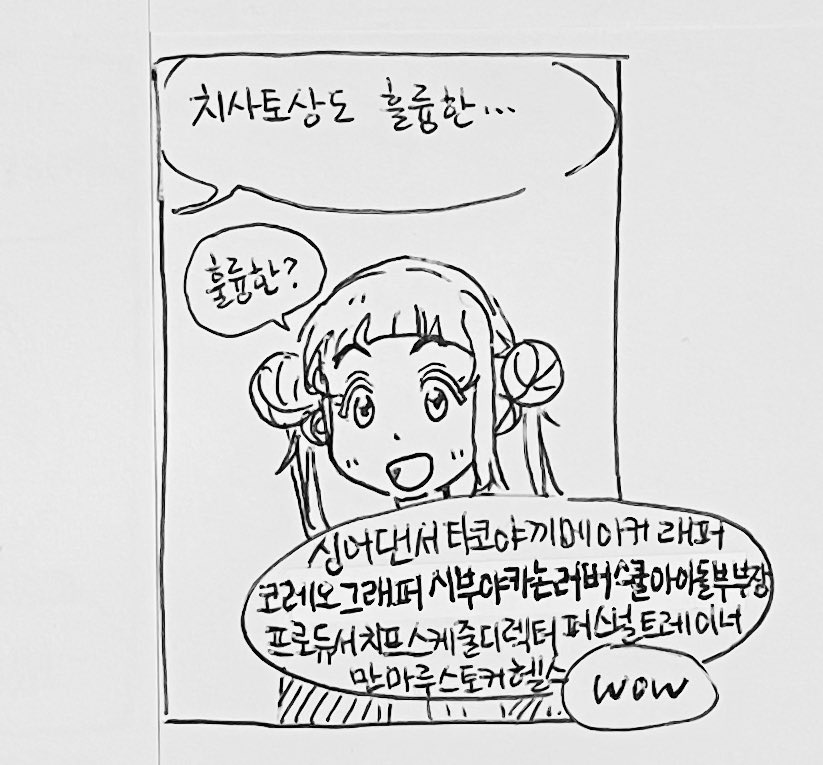 치사토상도 훌륭한...
훌륭한?
싱어댄서타코야끼메이커 래퍼
코레오그래퍼 시부야카논러버 스쿨아이돌부부장
프로듀서치프스케줄디렉터 퍼스널트레이너
만마루스토커헬스
WOW